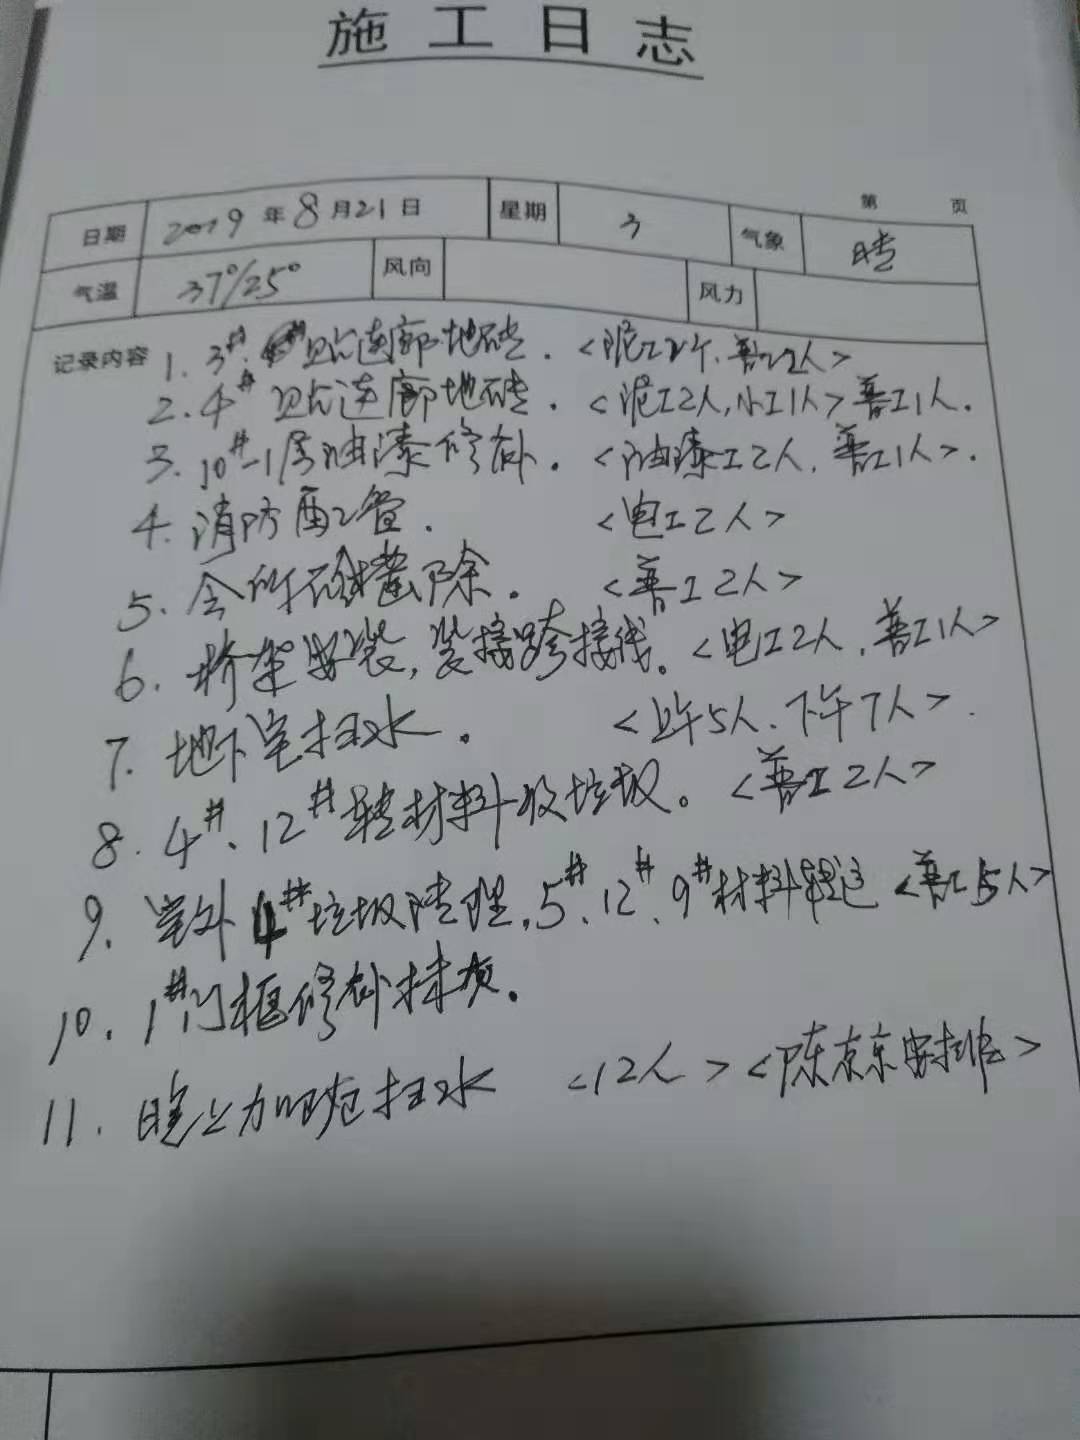 施工日志
第 页
日期 2019年8月21日 星期 3 气象 晴
气温 37°/25° 风向 风力
记录内容 1. 3# 贴连廊地砖. <泥工2个、普工2人>
2. 4# 贴连廊地砖. <泥工2人,小工1人>普工1人.
3. 10#-1层油漆修补. <油漆工2人, 普工1人>.
4. 消防配管. <电工2人>
5. 会所石材凿除. <普工2人>
6. 桥架安装, 装接跨接线。<电工2人, 普工1人>
7. 地下室扫水. <上午5人、下午7人>.
8. 4#、12#转材料收垃圾。<普工2人>
9. 室外4#垃圾清理, 5#、12#、9#材料转运 <普工5人>
10. 1#门框修补抹灰.
11. 晚上加班扫水 <12人> <陈京京安排>